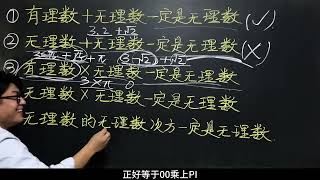 ① 有理数+无理数一定是无理数 (✓)
3.2+√2
② 无理数+无理数一定是无理数 (X)
③ 有理数×无理数一定是无理数
3×π 0
无理数×无理数一定是无理数
无理数的无理数次方一定是无理数
正好等于00乘上PI